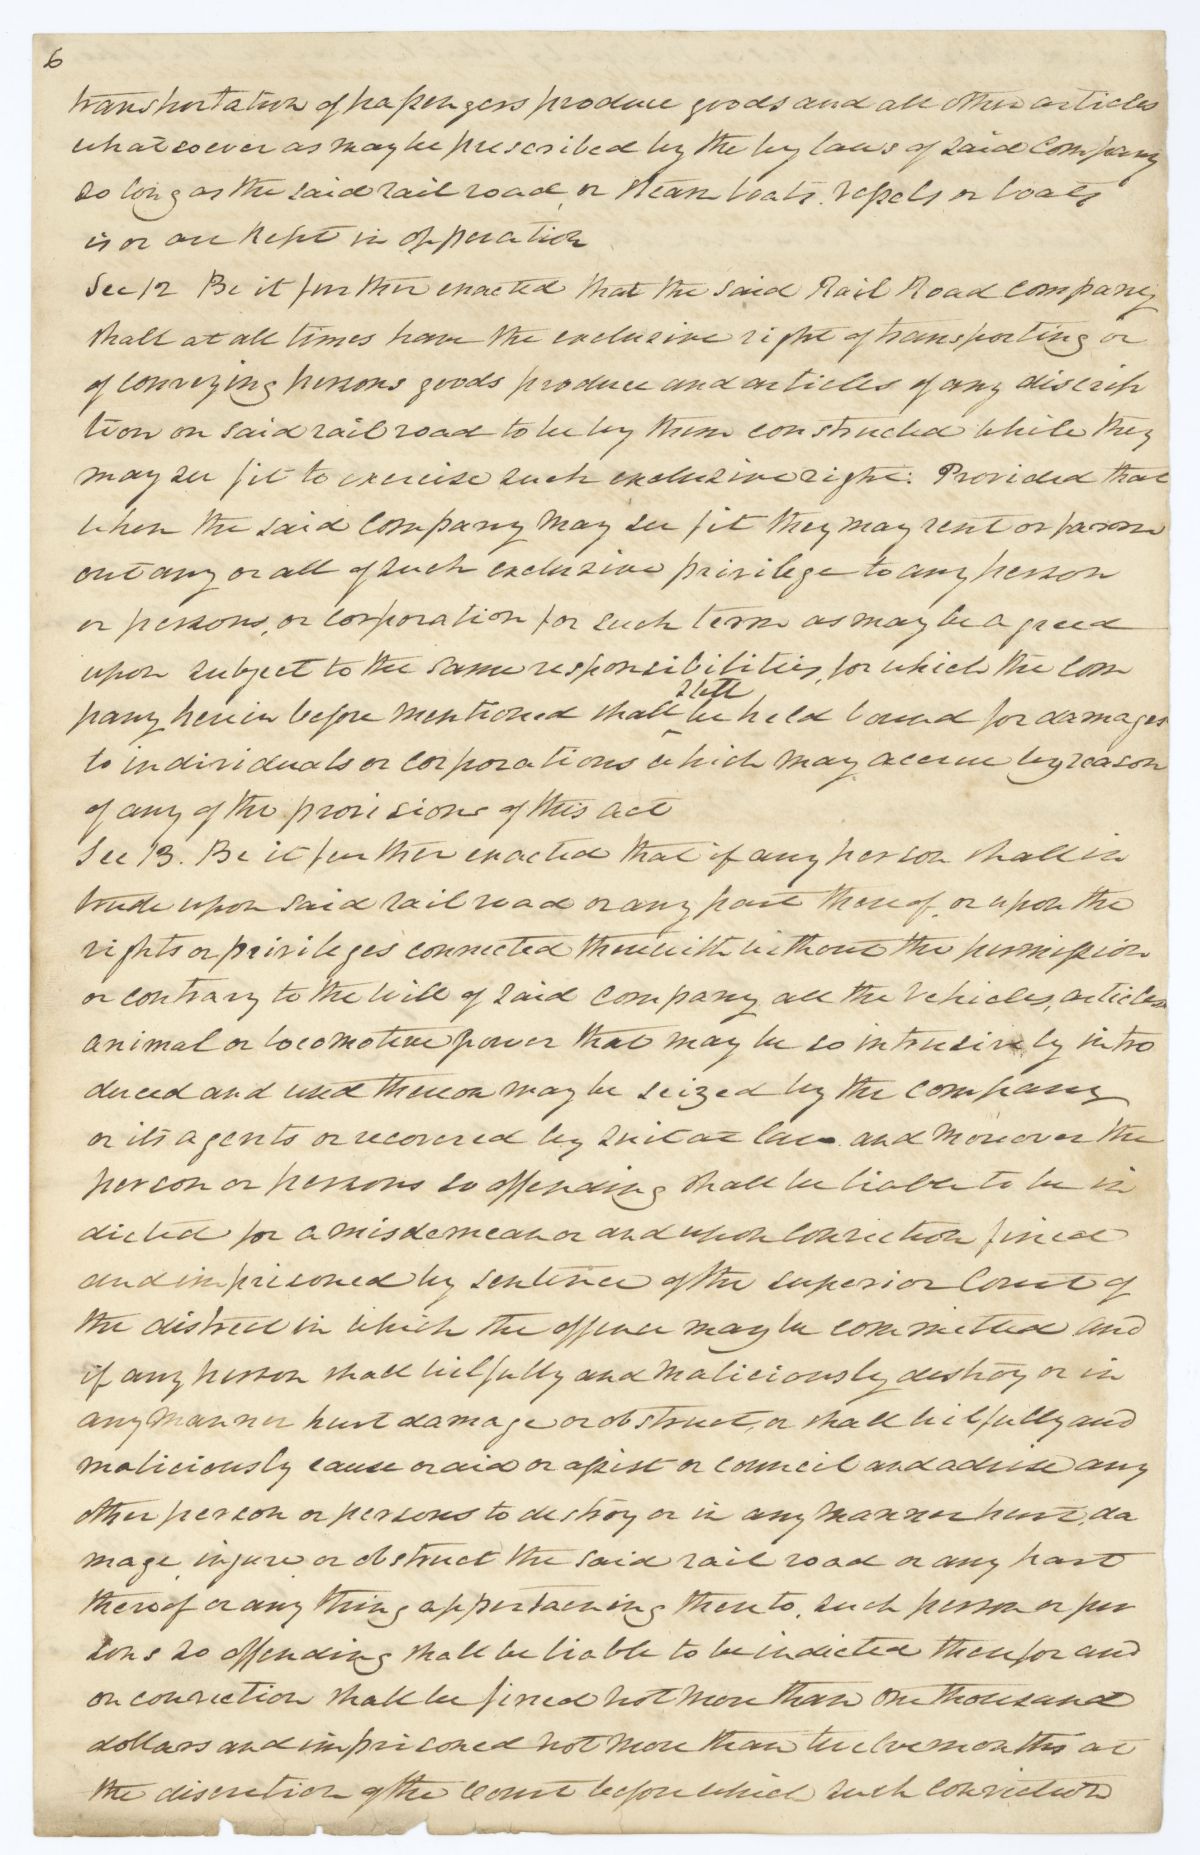 6
transportation of passengers produce goods and all other articles
whatsoever as may be prescribed by the by laws of said Company
so long as the said rail road, or steam boats. vessels or boats
is or are kept in opperation
Sec 12 Be it further enacted that the said Rail Road company
shall at all times have the exclusive right of transporting or
of conveying persons goods produce and articles of any discrip
tion on said rail road to be by them constructed while they
may see fit to exercise such exclusive right: Provided that
when the said company may see fit they may rent or farm
out any or all of such exclusive privilege to any person
or persons, or corporation for such term as may be agreed
upon subject to the same responsibilities, for which the com
shall
pany herein before mentioned shall be held bound for damages
to individuals or corporations which may accrue by reason
of any of the provisions of this act
Sec 13. Be it further enacted that if any person shall in
trude upon said rail road or any part thereof, or upon the
rights or privileges connected therewith without the permission
or contrary to the will of said company all the vehicles, articles
animal or locomotive power that may be so intrusively intro
duced and used thereon may be seized by the company
or its agents or recovered by suit at law and moreover the
person or persons so offending shall be liable to be in
dicted for a misdemeanor and upon conviction fined
and imprisoned by sentence of the superior Court of
the district in which the offence may be committed and
if any person shall wilfully and maliciously destroy or in
any manner hurt damage or obstruct, or shall wilfully and
maliciously cause or aid or assist or council and advise any
other person or persons to destroy or in any manner hurt, da
mage, injure or obstruct the said rail road or any part
thereof or any thing appertaening thereto, such person or per
sons so offending shall be liable to be indicted therefor and
on conviction shall be fined not more than one thousand
dollars and imprisoned not more than twelve months at
the discretion of the Court before which such conviction